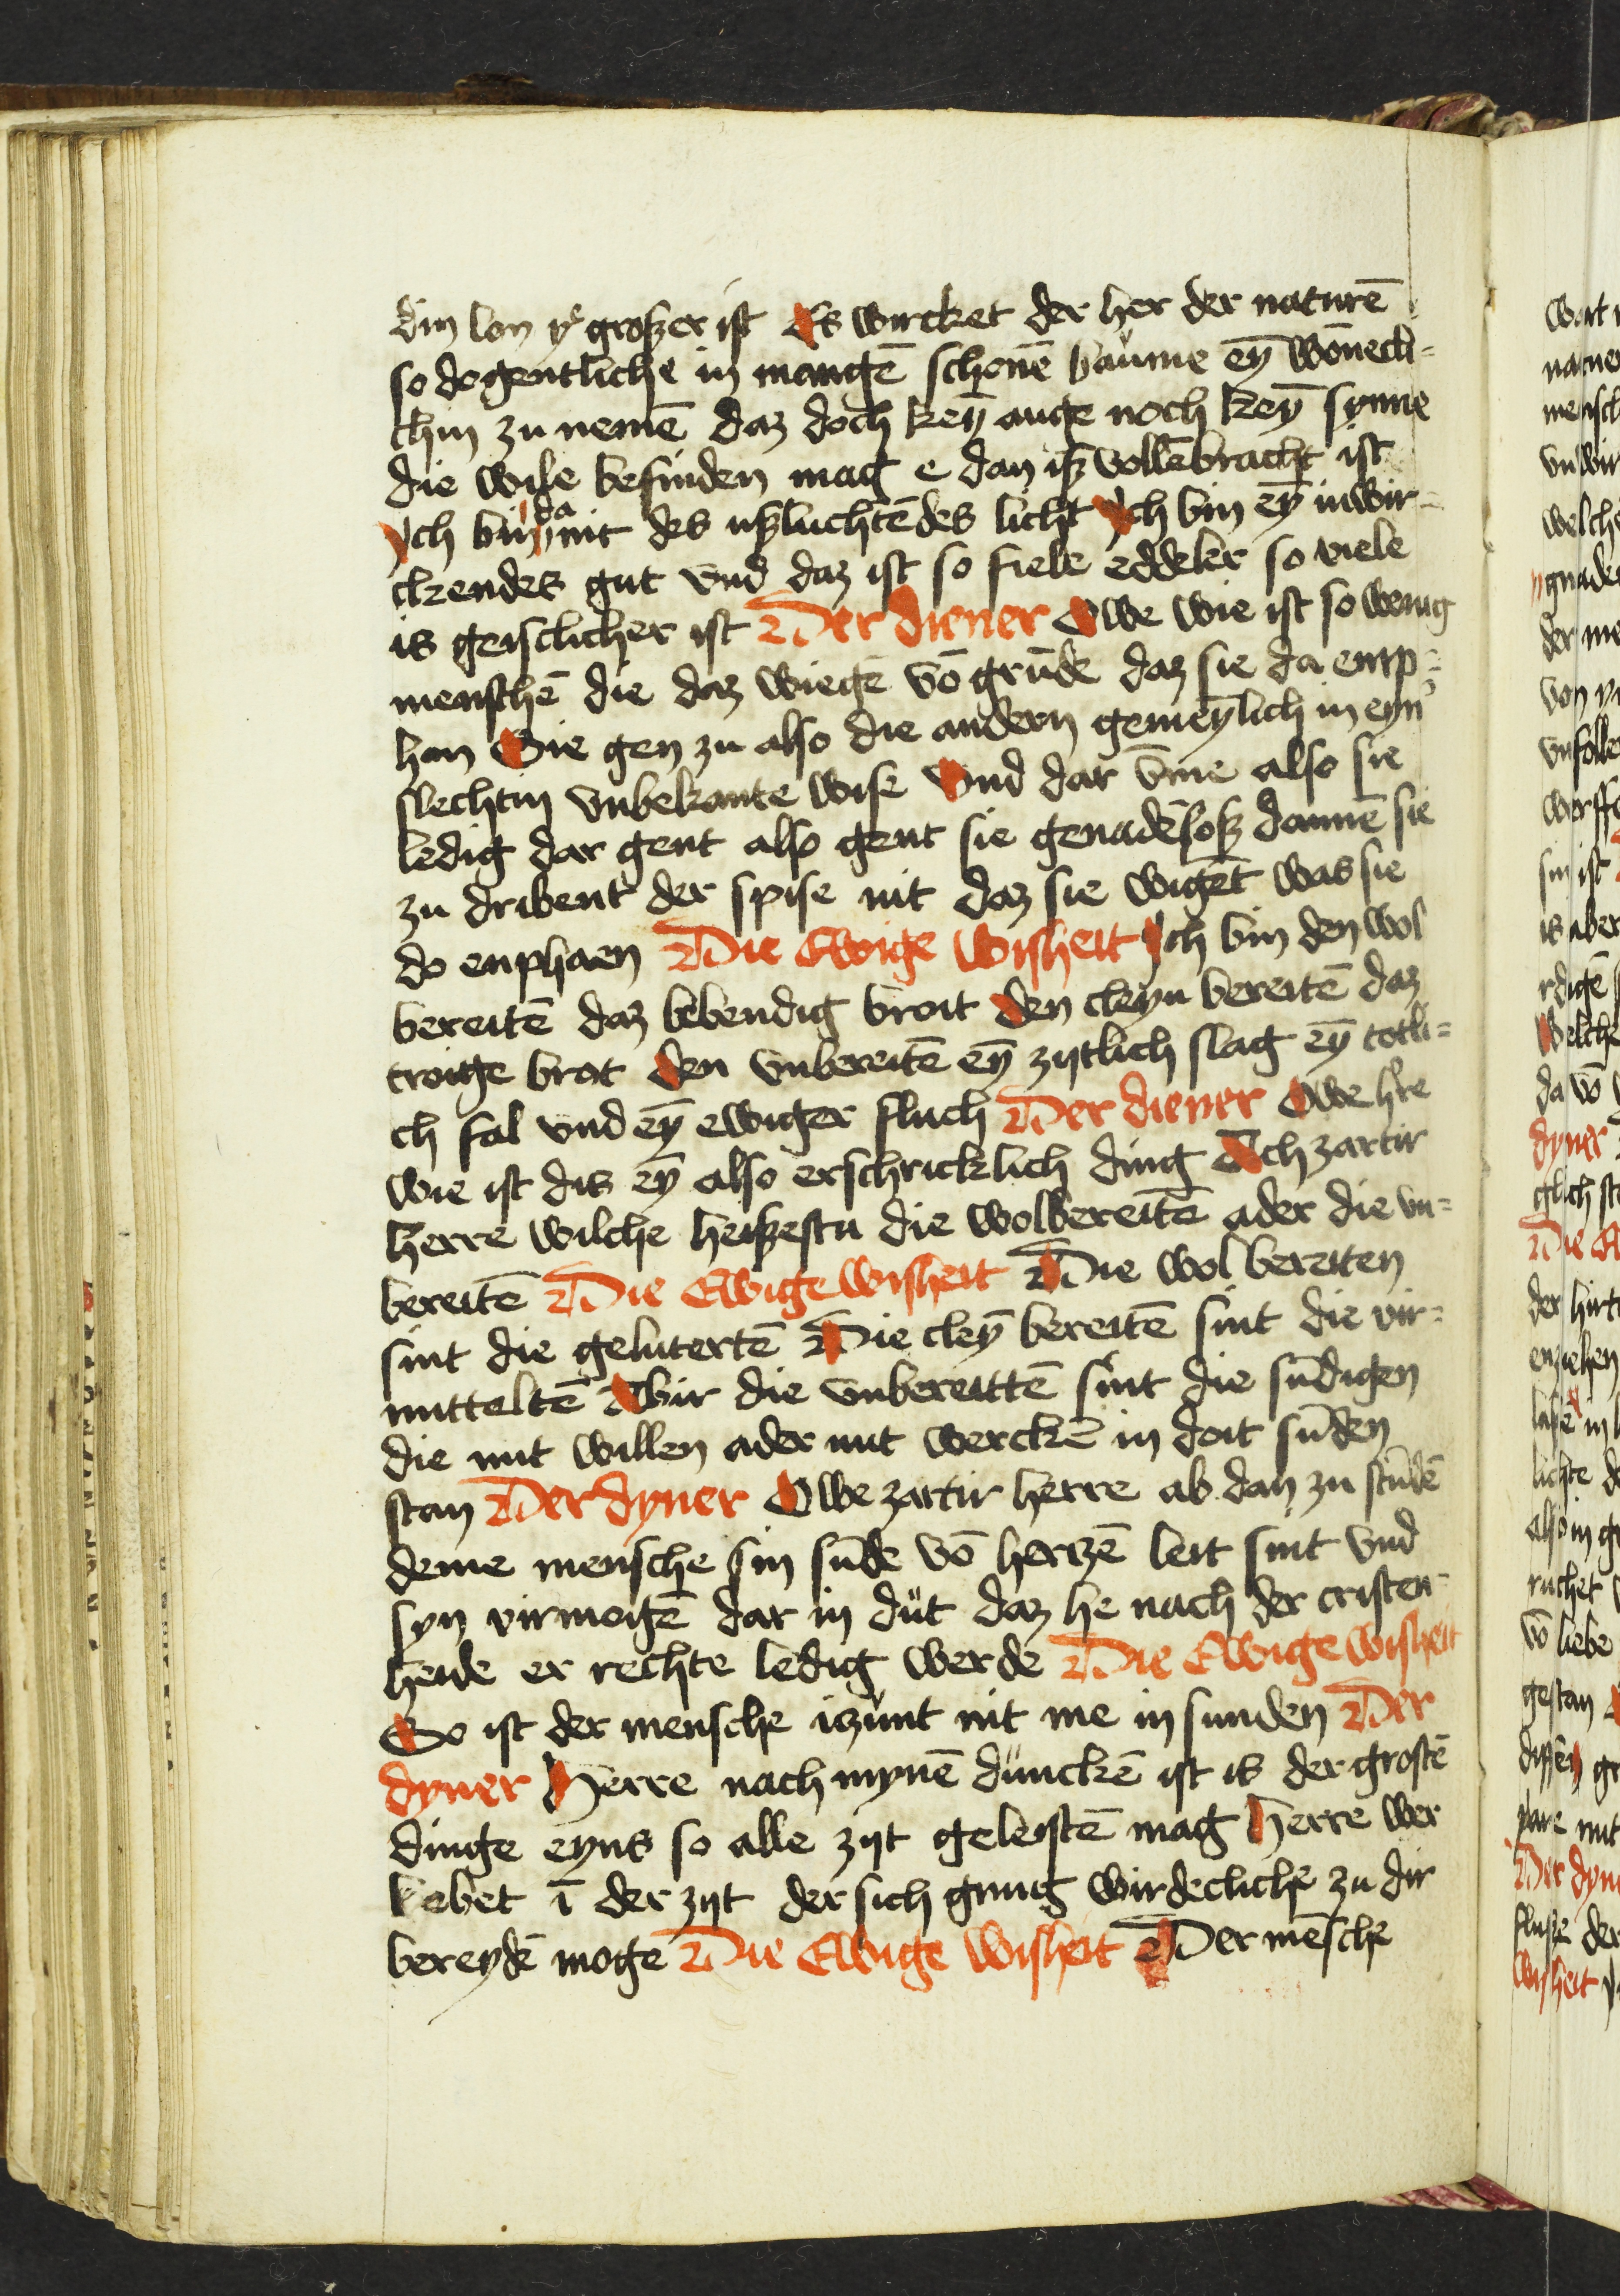 din lon yͤ groszer ist Es wircket der her der naturē
so dogentliche in mangē schonē baume eȳ wōnecli=
chin zu nemē daz doch keȳ auge noch keȳ synne
die wile befinden mag e dan isz vollēbracht ist
Ych bin da nit des uszluchtēdes licht Ych bin eȳ inwir-
ckendes gut vnd daz ist so fiele eddeler so viele
is geisclicher ist Der diener Owe wie ist so wenig
menschē die daz wiegē vō grūde daz sie da emp=
han Sie gen zu also die andern gemeylich in eyn
slechtin vnbekante wise Vnd dar vm̄e also sie
ledig dar gent also gent sie genadēlosz dannē sie
zu dribent der spise nit daz sie wigēt was sie
do enphaen Die Ewige wisheit Ych bin den wol
bereitē daz lebendig broit den cleyn bereitē daz
troige brot den vnbereitē eȳ zytlich slag eȳ totli=
ch fal vnd eȳ ewiger fluch Der diener Owe hre
wie ist dis eȳ also erschricklich ding Ach zartir
herre wilche heiszestu die wolbereitē ader die vn=
bereitē Die Ewige wisheit Die wol bereiten
sint die gelutertē Die cleȳ bereitē sint die vir=
mitteltē Abir die vnbereittē sint die sūdigen
die mit willen ader mit werckē in doit sūden
stan Der dyner Owe zartir herre ab dan zu stūdē
deme mensche sin sūde vō hertzē leit sint vnd
syn virmogē dar in düt daz he nach der cristen-
heide er rechte ledig werde Die Ewige wisheit
So ist der mensche iczunt nit me in sunden Der
dyner Herre nach mynē dünckē ist is der grostē
dinge eyns so alle zyt geleistē mag Herre wer
lebet ī der zyt der sich gnug wirdecliche zu dir
bereydē moge Die Ewige wisheit Der mēsche